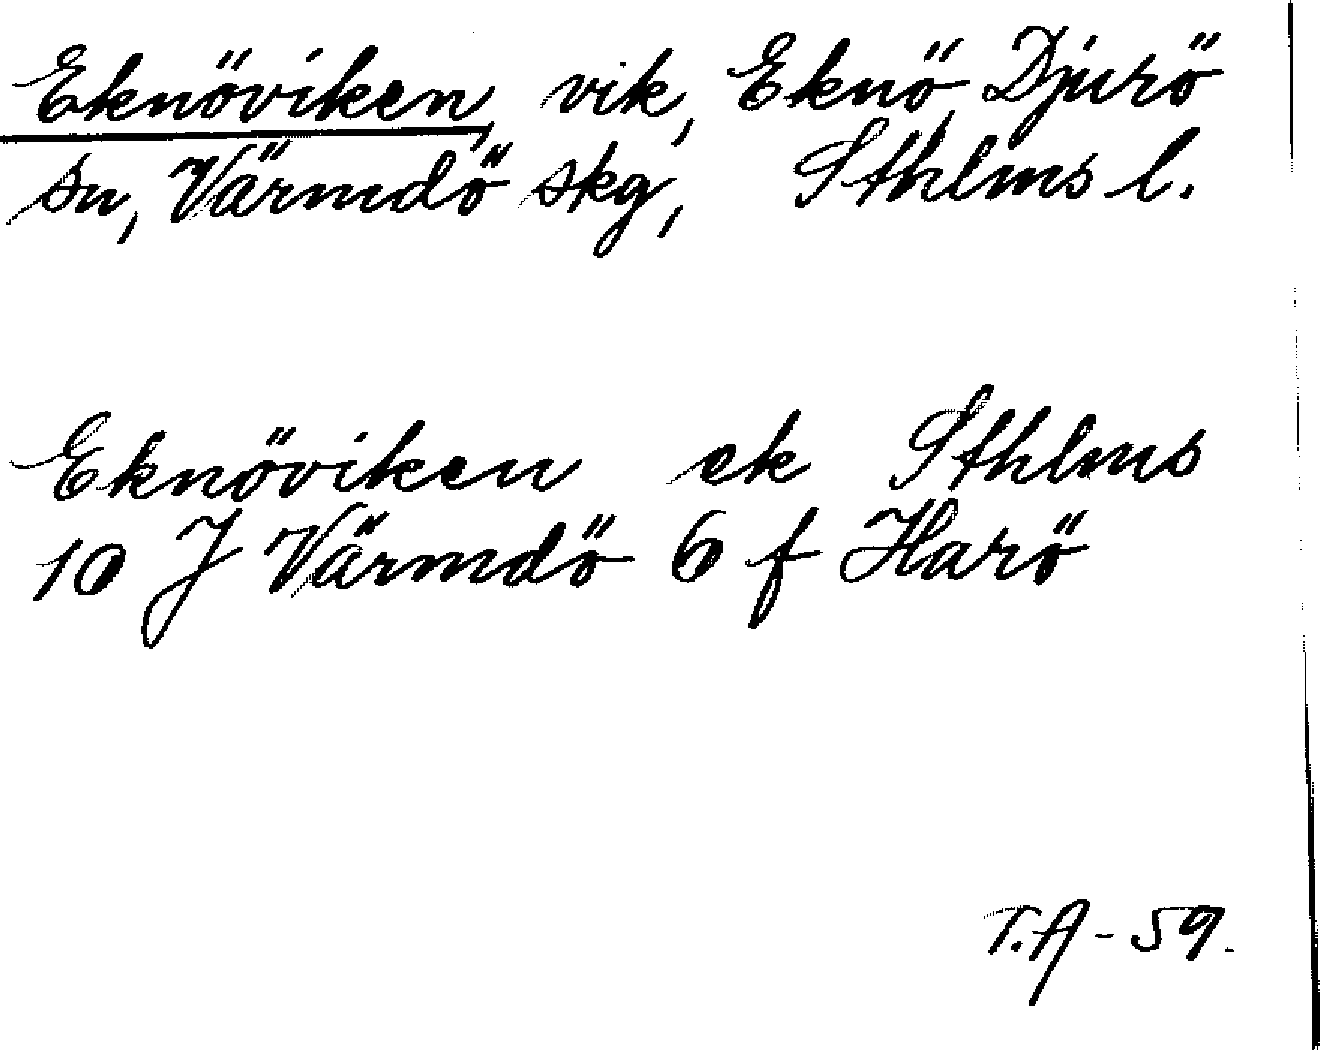 Eknöviken, vik, Eknö, Djurö
sn, Värmdö skg, Sthlms l.
Eknöviken ek Sthlms
10 J Värmdö 6 f Harö
T.A - 59.